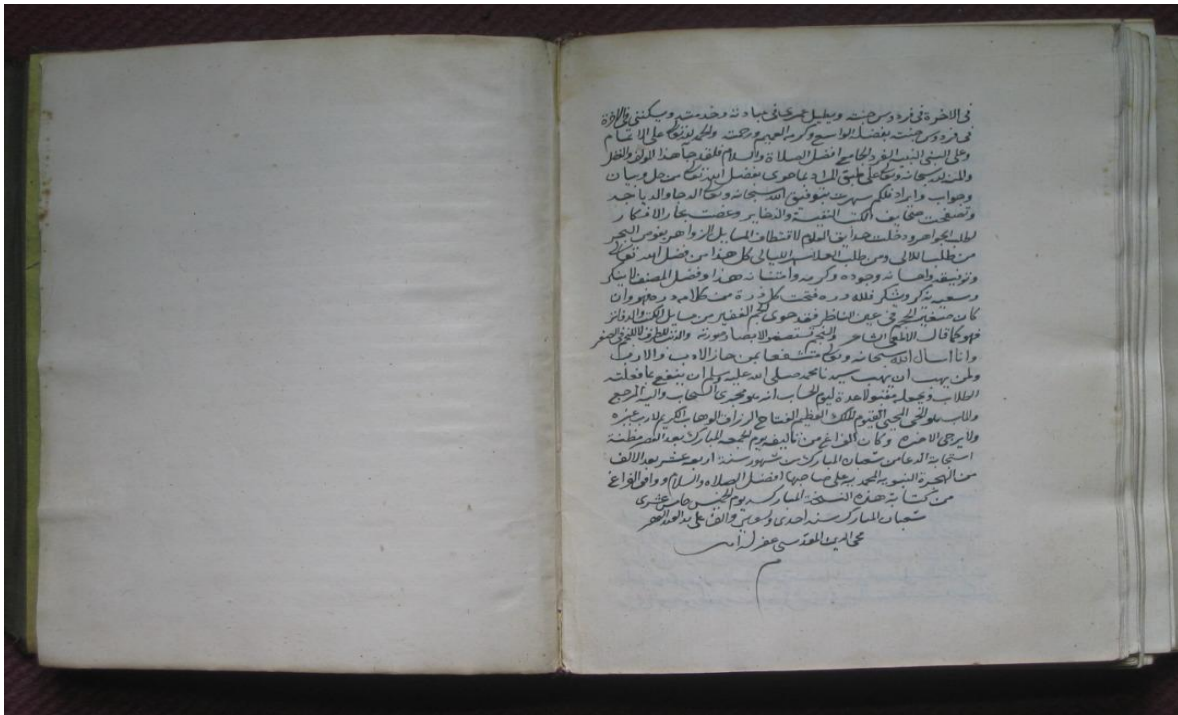 في الاخرة في فردوس جنته ويطيل عمري في عبادته وخدمته ويسكنني في الاخرة
في فردوس جنته بفضله الواسع وكرمه العميم ورحمته والحمد لله تعالى على الاتمام
وعلى النبي النبيه الفرد الجامع افضل الصلاة والسلام فلقد جآ هذا المولف والفضل
والمن لله سبحانه وتعالى على طبق المراد بما حوى بفضل الله تعالى من حل وبيان
وجواب وايراد فلكم سهرت بتوفيق الله سبحانه وتعالى الدجا والدياجر
وتصفحت صحايف الكتب النفيسة والذخاير وغصت بحار الافكار
لطلب الجواهر ودخلت حدايق العلوم لاقتطاف المسايل الزواهر يغوص البحر
من طلب اللالي ومن طلب العلا سهر الليالي كل هذا من فضل الله تعالى
وتوفيقه واحسانه وجوده وكرمه وامتنانه هذا وفضل المصنف لا ينكر
وسعيه يذكر ويشكر فلله دره فتحت كل ذرة من كلامه دره فهو وان
كان صغير الحجم في عين الناظر فقد حوى الجم الغفير من مسايل الكتب والدفاتر
فهو كما قال الشاعر والنجم تستصغر الابصار صورته والذنب للطرف لا للنجم في الصغر
وانا اسال الله سبحانه وتعالى متشفعا بمن حاز الادب والارب
ولمن يهب ان يهب سيدنا محمد صلى الله عليه وسلم ان ينفع بما فعلته
الطلاب ويجعله مقبولا عدة ليوم الحساب انه هو مجري السحاب واليه المرجع
والماب هو الحي المحيي القيوم الملك العظيم الفتاح الرزاق الوهاب الكريم لا رب غيره
ولا يرجى الا خيره وكان الفراغ من تاليفه يوم الجمعه المبارك بعد العصر مظنة
استجابة الدعا من شعبان المبارك من شهور سنة اربعة عشر بعد الالف
من الهجرة النبويه المحمديه على صاحبها افضل الصلاه والسلام ووافق الفراغ
من كتابة هذه النسخة المباركه يوم الخميس خامس عشري
شعبان المبارك سنه احدى وا والف على يد العبد الفقير
محي الدين المقدسي غفر له امين
م